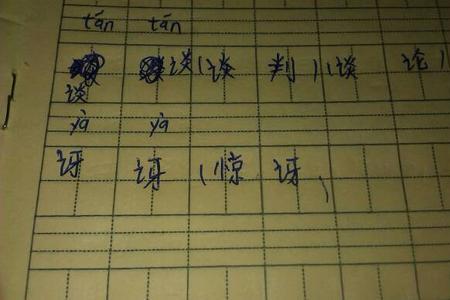 tán tán
谈(谈判)(谈论)
谈
yà yà
讶 讶(惊讶)